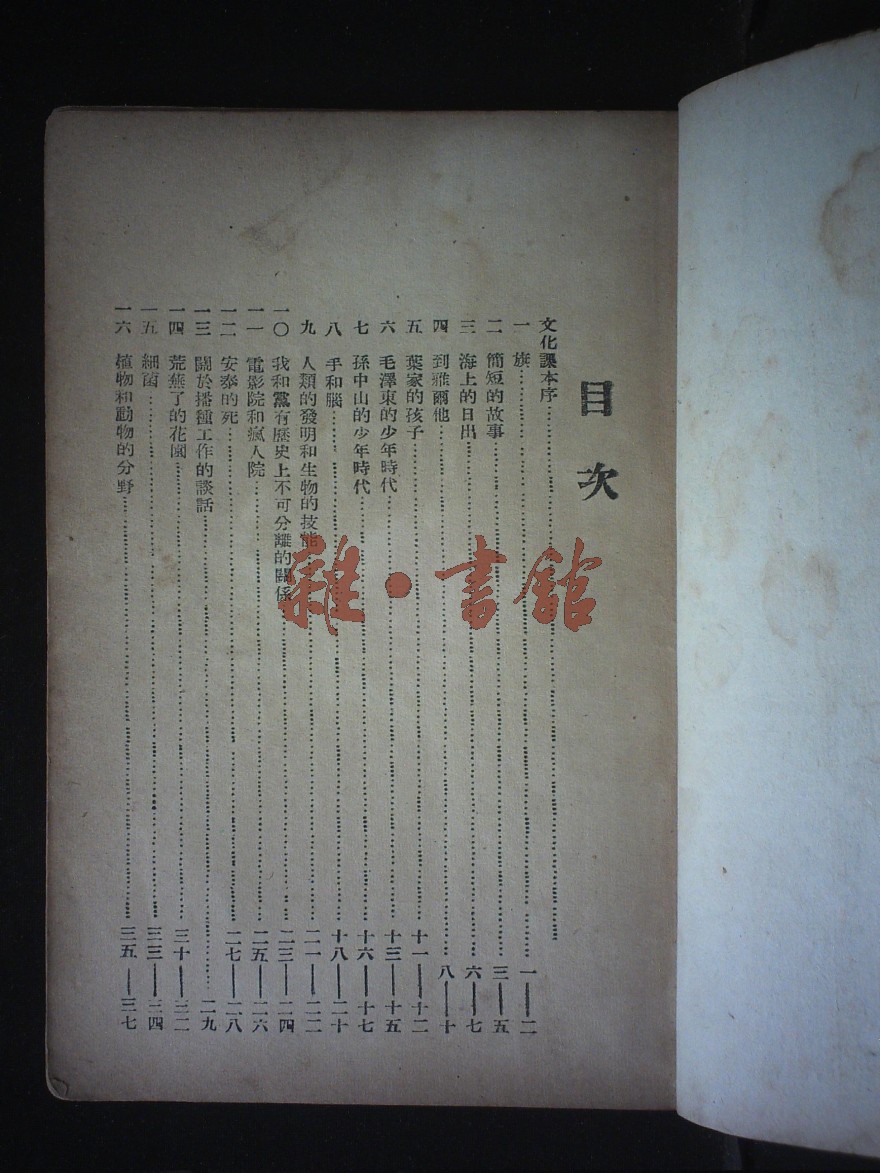 目次
文化課本序
一 旗 一——二
二 簡短的故事 三——五
三 海上的日出 六——七
四 到雅爾他 八——十
五 葉家的孩子 十一——十二
六 毛澤東的少年時代 十三——十五
七 孫中山的少年時代 十六——十七
八 手和腦 十八——二十
九 人類的發明和生物的技能 二一——二二
一〇 我和黨有歷史上不可分離的關係 二三——二四
一一 電影院和瘋人院 二五——二六
一二 安泰的死 二七——二八
一三 關於播種工作的談話 二九
一四 荒蕪了的花園 三十——三二
一五 細菌 三三——三四
一六 植物和動物的分野 三五——三七
雜·書館